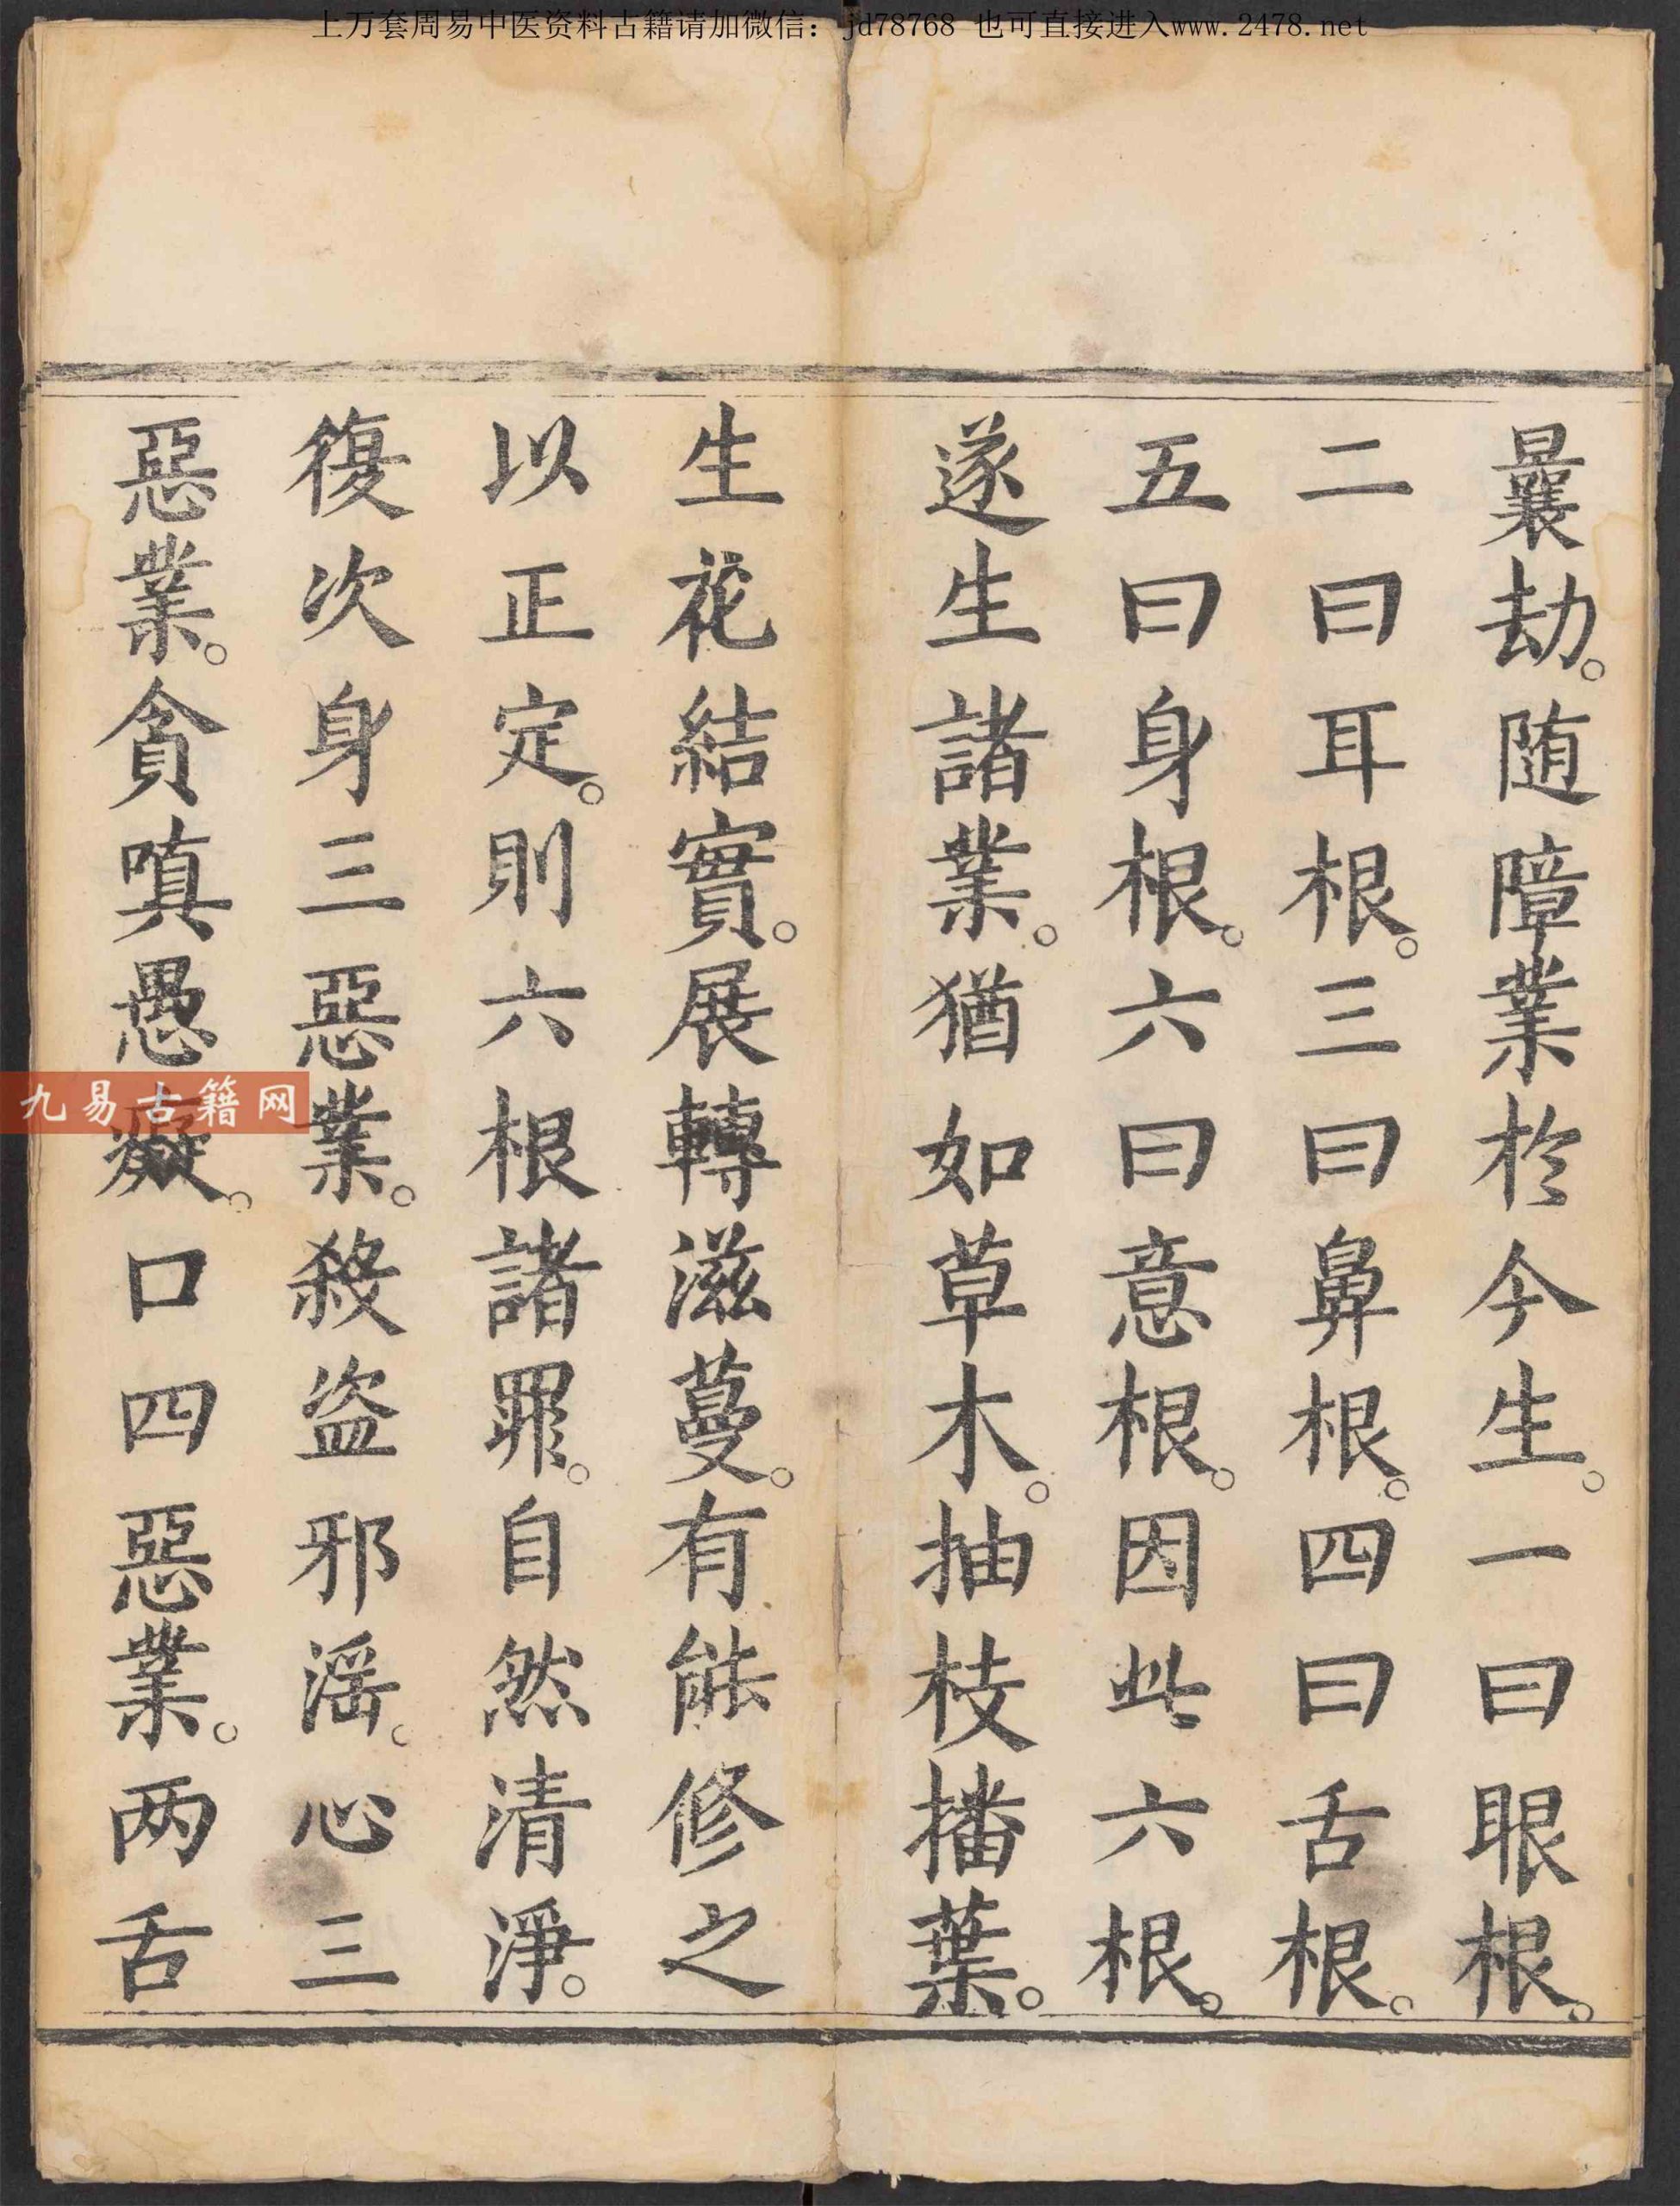 上万套周易中医资料古籍请加微信：jd78768 也可直接进入www.2478.net
曩劫。随障業於今生。一曰眼根。
二曰耳根。三曰鼻根。四曰舌根。
五曰身根。六曰意根。因此六根。
遂生諸業。猶如草木。抽枝播葉。
生花結實。展轉滋蔓。有能修之
以正定。則六根諸罪。自然清淨。
復次身三惡業。殺盗邪淫。心三
惡業。貪嗔愚癡。口四惡業。两舌
九易古籍网